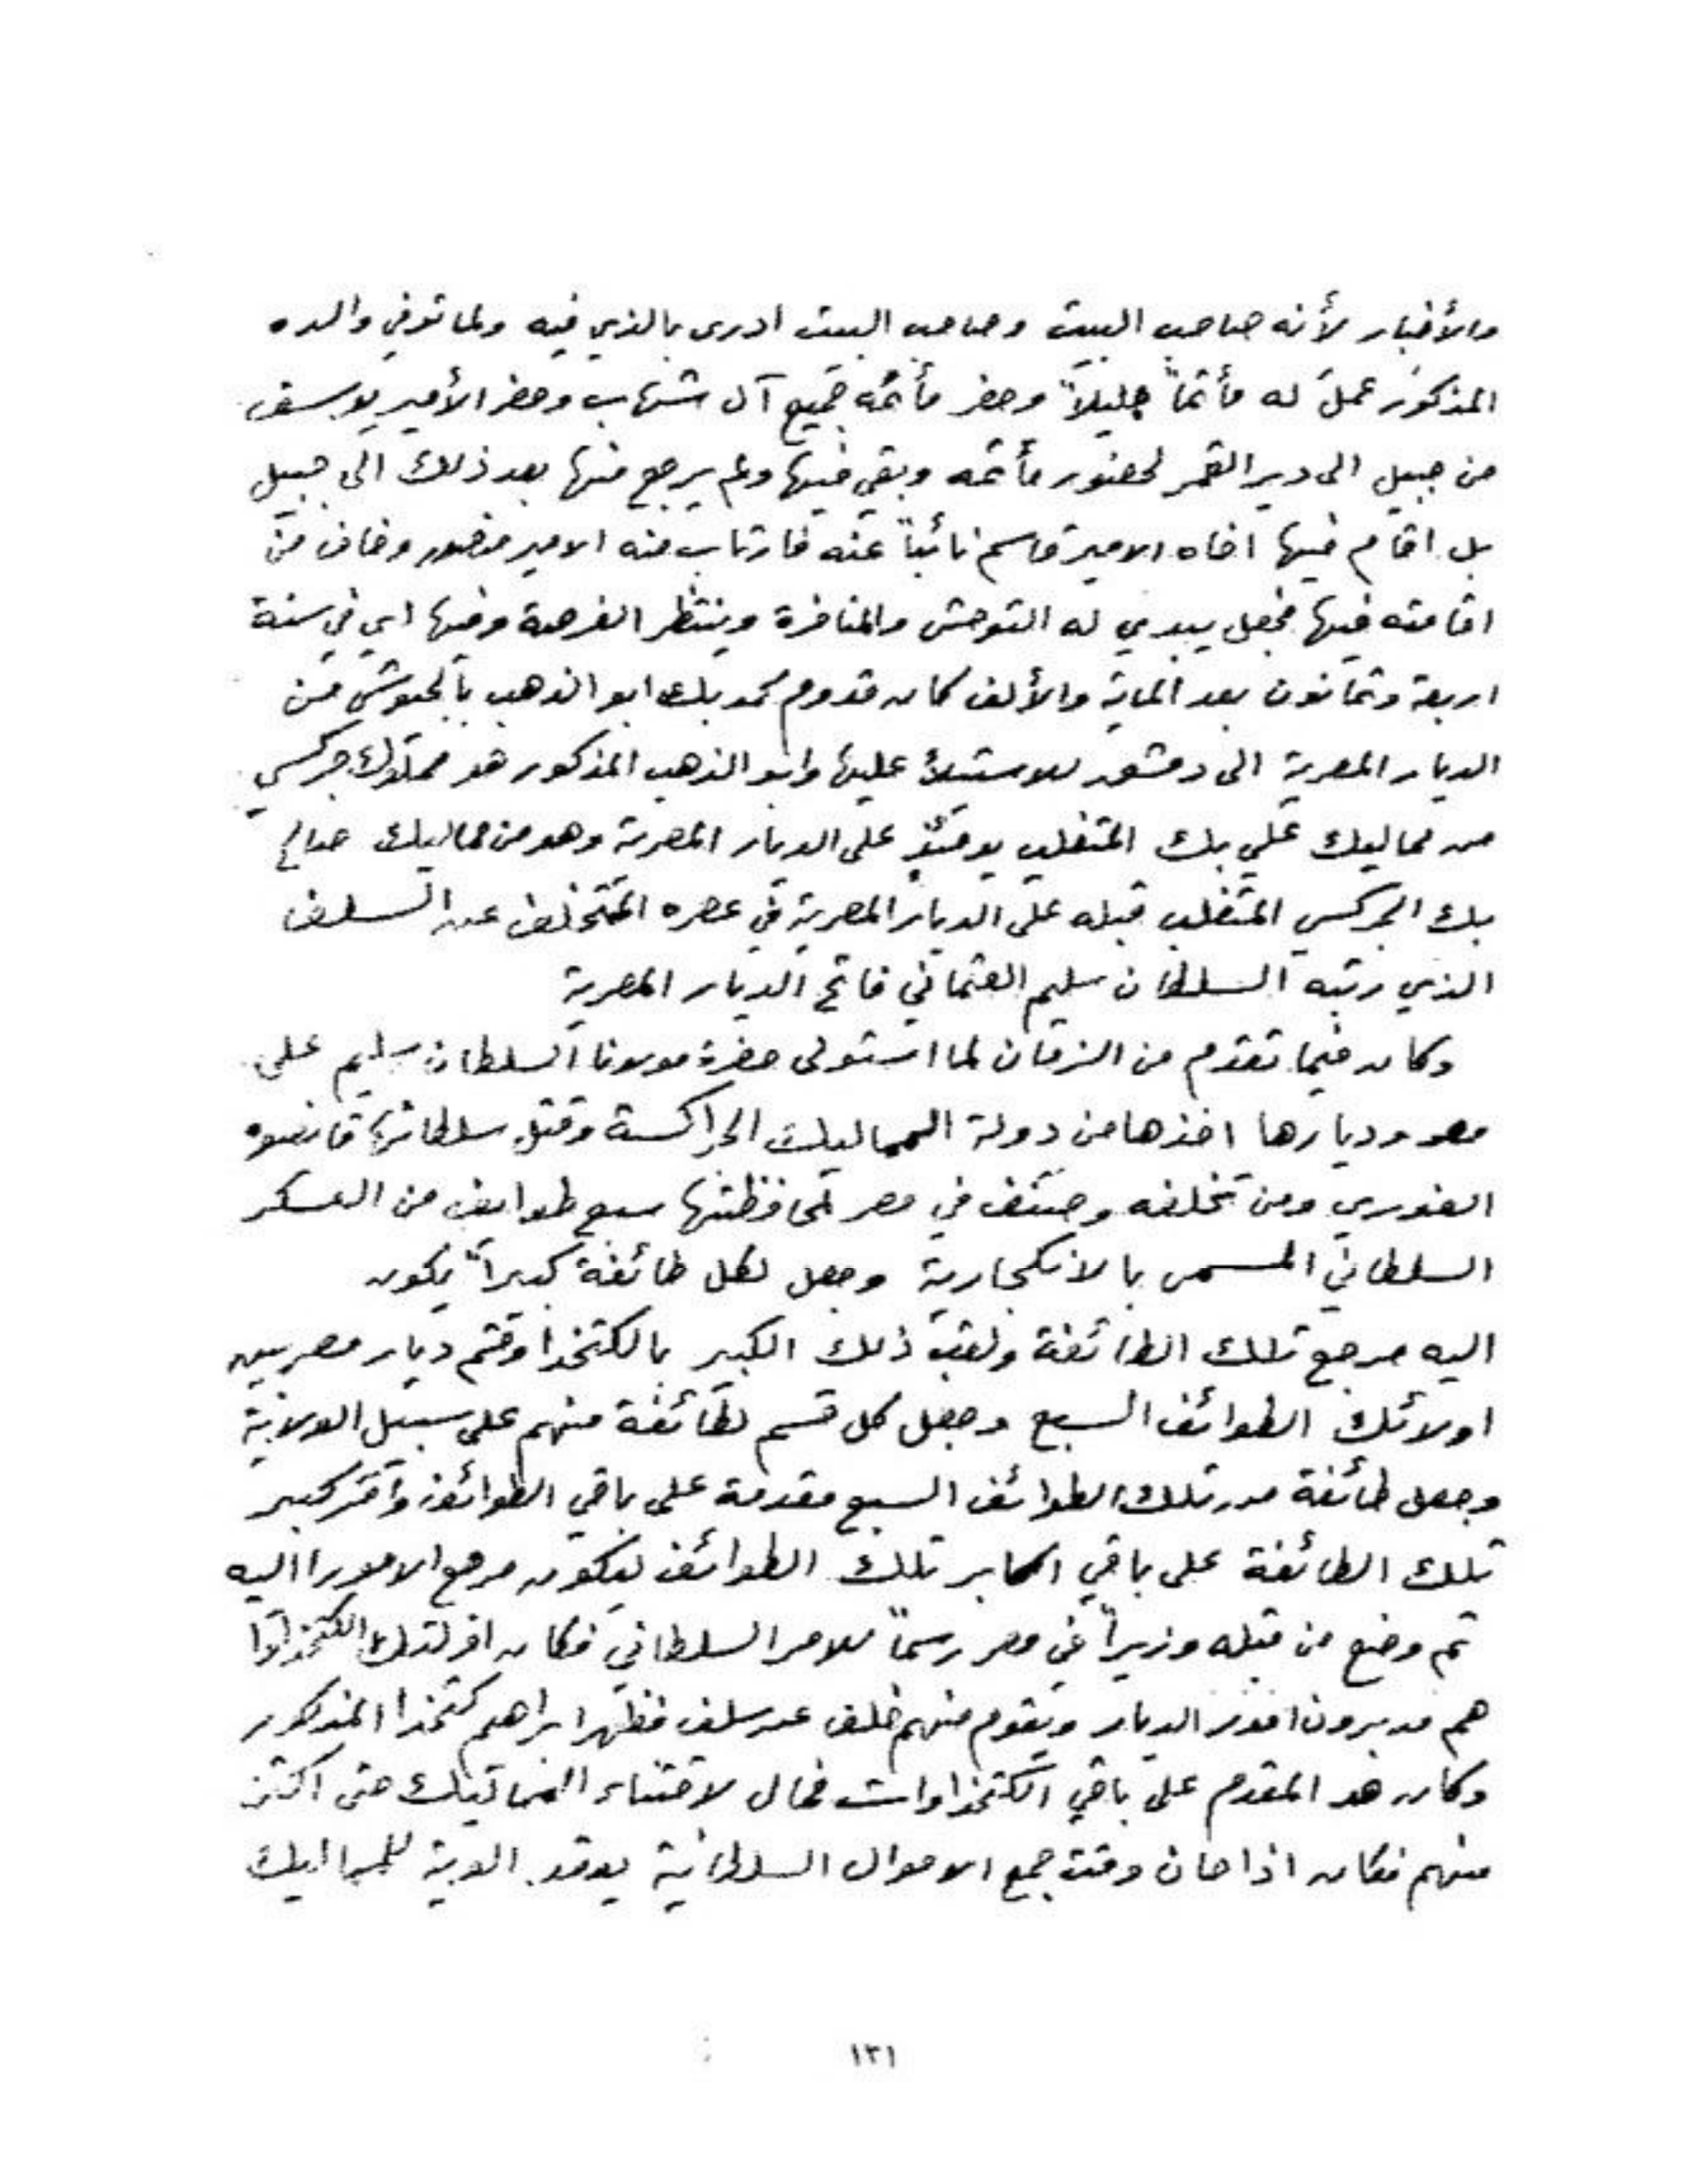 والأخبار لأنه صاحب البيت وصاحب البيت ادرى بالذي فيه ولما توفي والده
المذكور عمل له مأتماً جليلاً وحضر مأتمه جميع آل شهاب وحضر الأمير يوسف
من جبيل الى دير القمر لحضور مأتمه وبقي فيها ولم يرجع منها بعد ذلك الى جبيل
بل اقام فيها اخاه الامير قاسم نائباً عنه فارتاب منه الامير منصور وخاف من
اقامته فيها فجعل يبدي له التوحش والمنافرة وينتظر الفرصة وفيها اي في سنة
اربعة وثمانون بعد الماية والألف كان قدوم محمد بك ابو الذهب بالجيوش من
الديار المصرية الى دمشق للاستيلأ عليها وابو الذهب المذكور هو مملوك جركسي
من مماليك علي بك المتغلب يومئذٍ على الديار المصرية وهو من مماليك صالح
بك الجركسي المتغلب قبله على الديار المصرية في عصره المتخلف عن السلف
الذي رتبه السلطان سليم العثماني فاتح الديار المصرية
وكان فيما تقدم من الزمان لما استولى حضرة مولانا السلطان سليم على
مصر وديارها اخذها من دولة المماليك الجراكسة وقتل سلطانها قانصوه
الغوري ومن تخلفه وصنف في مصر لمحافظتها سبع طوايف من العسكر
السلطاني المسمى بالانكجارية وجعل لكل طائفة كبيراً يكون
اليه مرجع تلك الطائفة ولقب ذلك الكبير بالكتخذا وقسم ديار مصر بين
اولائك الطوائف السبع وجعل كل قسم لطائفة منهم على سبيل الولاية
وجعل طائفة من تلك الطوائف السبع مقدمة على باقي الطوائف وأمر كبير
تلك الطائفة على باقي اكابر تلك الطوائف ليكون مرجع الامور اليه
ثم وضع من قبله وزيراً في مصر رسماً للامر السلطاني فكان اولئك الكتخداوا
هم مدبرون امور الديار ويقوم منهم خلف عن سلف فظهر ابراهيم كتخذا المذكور
وكان هو المقدم على باقي الكتخذاوات فمال لاقتناء المماليك حتى اكثر
منهم فكان اذا حان وقت جمع الاموال السلطانية يعقد الوية للمماليك
١٣١